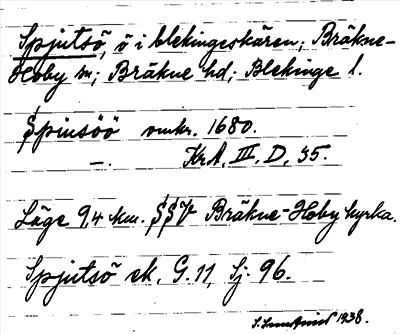 Spjutsö, ö i blekingeskären; Bräkne-
Hoby sn; Bräkne hd; Blekinge l.
Spiusöö omkr. 1680.
—. KrA. III, D, 35.
Läge 9,4 km. SSV Bräkne-Hoby kyrka.
Spjutsö ek. G. 11, Sj. 96.
1938.